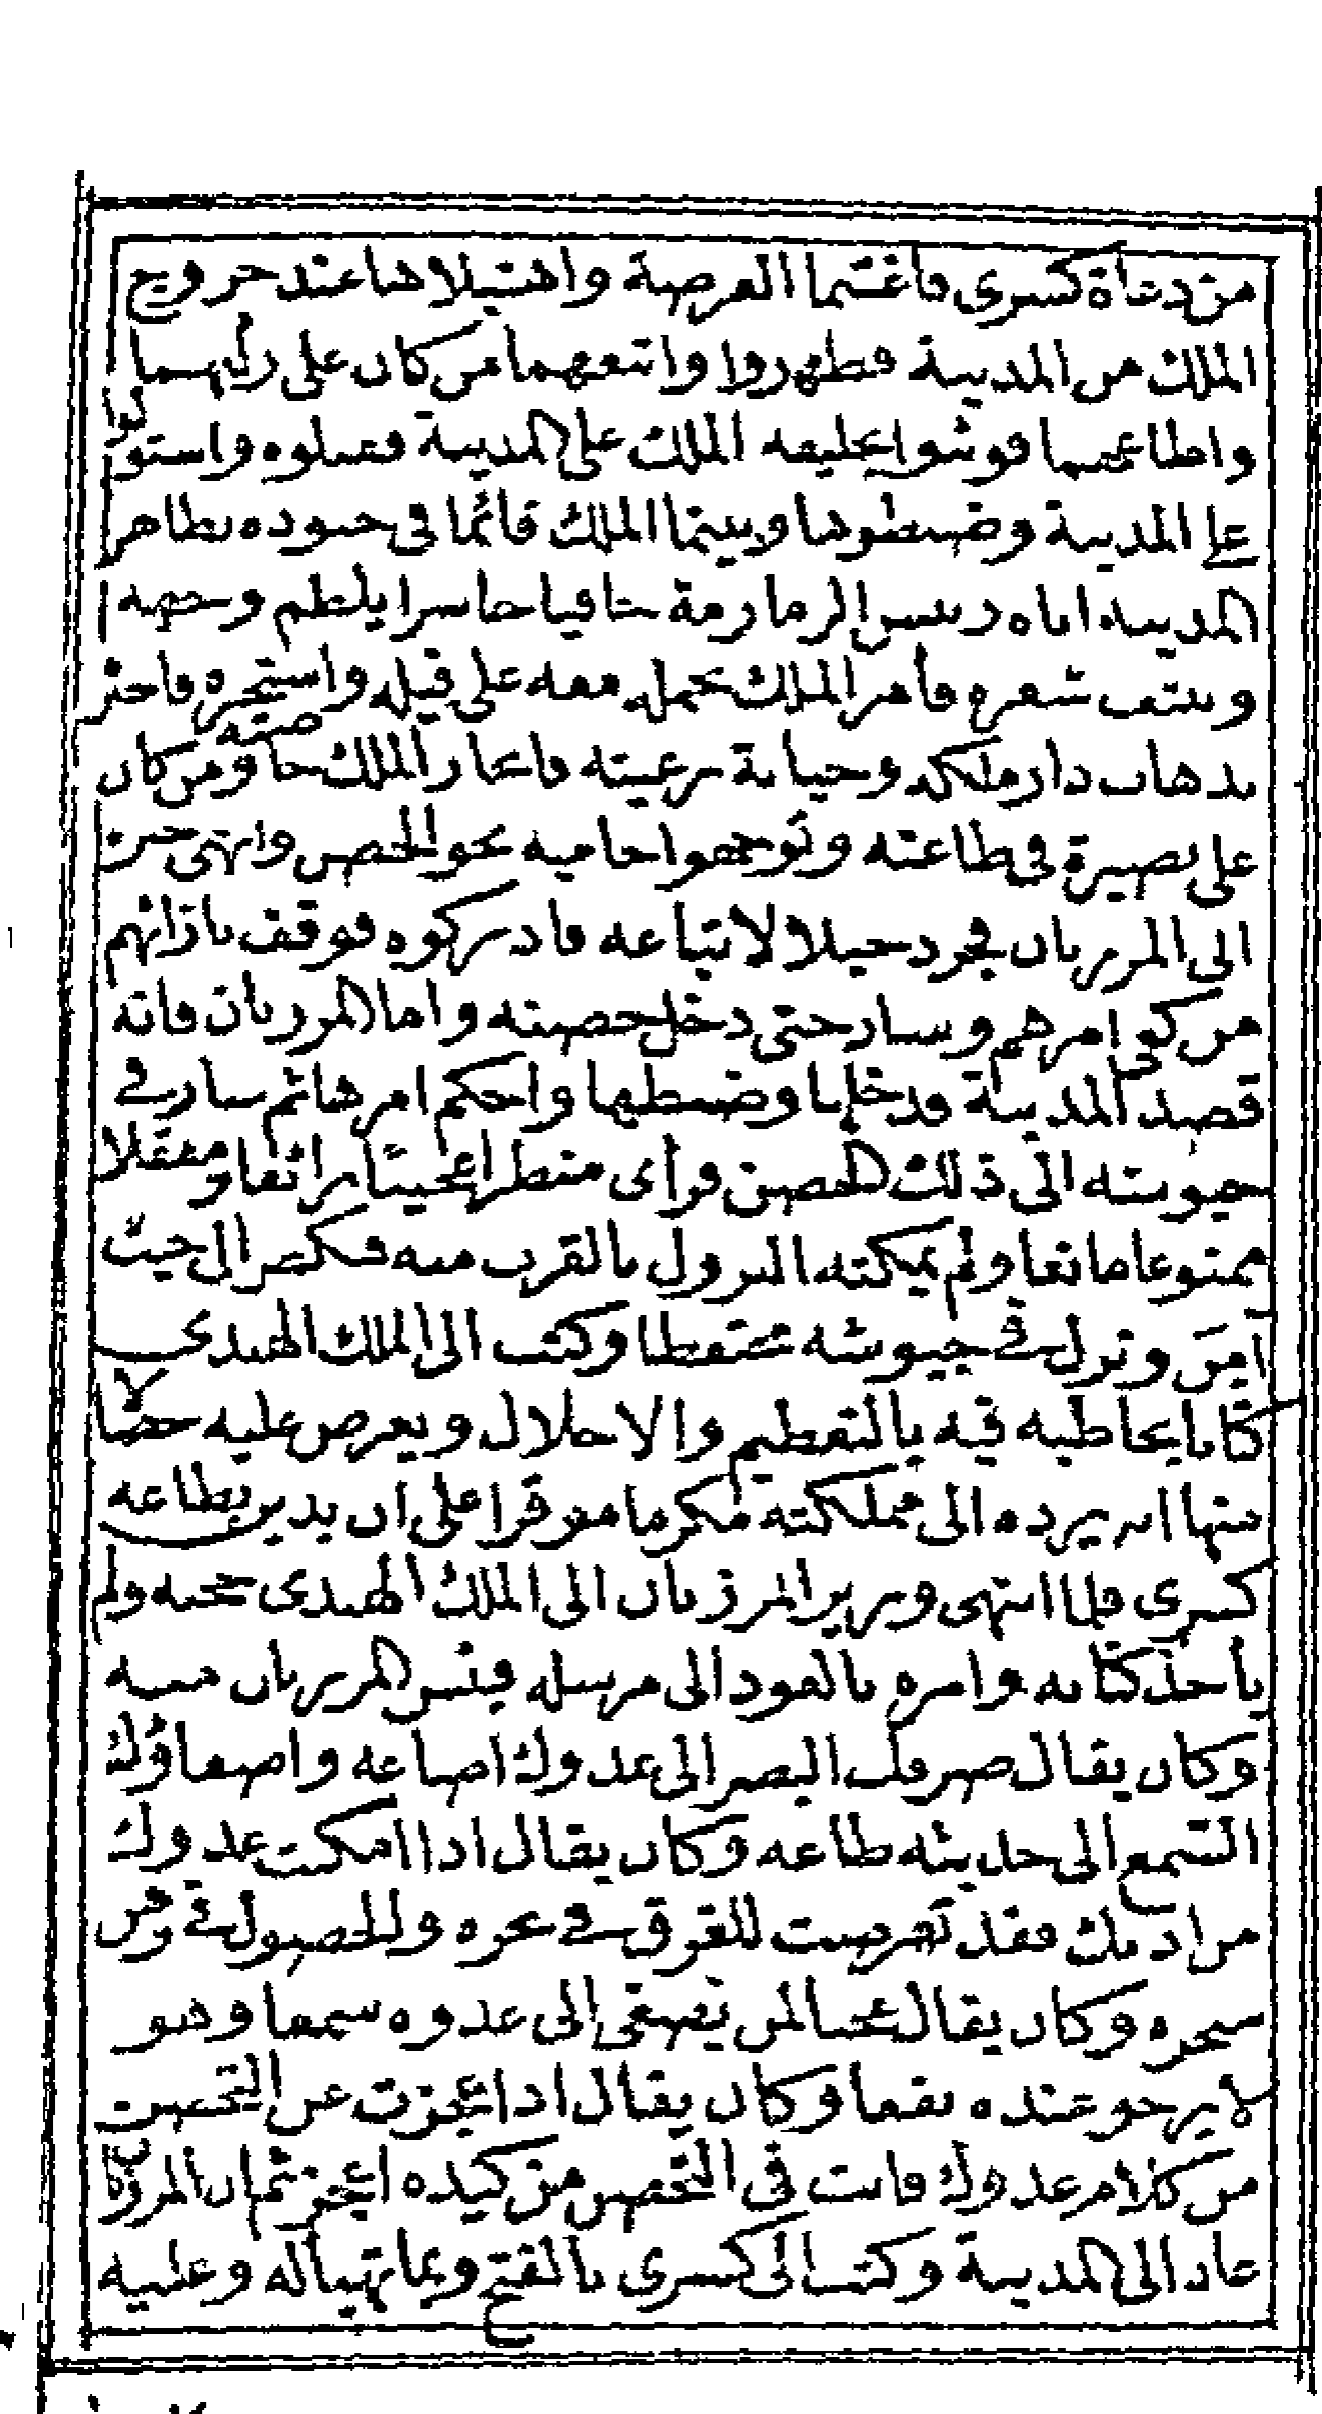 من دعاة كسرى فاغتنما الفرصة واهتبلاها عند خروج
الملك من المدينة فظهروا واتبعهما من كان على رأيهما
واطاعهما فوثبوا بخليفه الملك على المدينة فقتلوه واستولوا
على المدينة وضبطوها وبينما الملك قائما في جنوده بظاهر
المدينه اتاه رئيس الزمازمة حافيا حاسرا يلطم وجهه
وينتف شعره فأمر الملك بحمله معه على فيله واستخبره فاخبره
بذهاب دار ملكه وخيانة رعيته فانحاز الملك خاصته ومن كان
على بصيرة في طاعته وتوجهوا حاميه نحو الحصن وانتهى خبره
الى المرزبان فجرد خيلا لاتباعه فادركوه فوقف بازائهم
من كفى امرهم وسار حتى دخل حصنه واما المرزبان فانه
قصد المدينة فدخلها وضبطها واحكم امرها ثم سار في
جيوشه الى ذلك الحصن فرأى منظرا عجيبا رائعا ومعقلا
ممنوعا مانعا ولم يمكنه النزول بالقرب منه فنكص الى حيث
أمن ونزل في جيوشه متحفظا وكتب الى الملك الهندى
كتابا يخاطبه فيه بالتعظيم والاجلال ويعرض عليه خصالا
منها انه يرده الى مملكته مكرما موقرا على ان يدين بطاعه
كسرى فلما انتهى وزير المرزبان الى الملك الهندى حجبه ولم
يأخذ كتابه وامره بالعود الى مرسله فيئس المرزبان منه
وكان يقال صرفك البصر الى عدوك اضاعه واصغاؤك
السمع الى حديثه طاعه وكان يقال اذا امكنت عدوك
من اذنك فقد تعرضت للغرق في بحره وللحصول في وثن
سحره وكان يقال عجبا لمن يصغى الى عدوه سمعا وهو
لا يرجو عنده نفعا وكان يقال اذا عجزت عن التحصن
من كلام عدوك فانت في التحصن من كيده اعجز ثم ان المرزبان
عاد الى المدينة وكتب الى كسرى بالفتح وبما تهيأ له وعليه